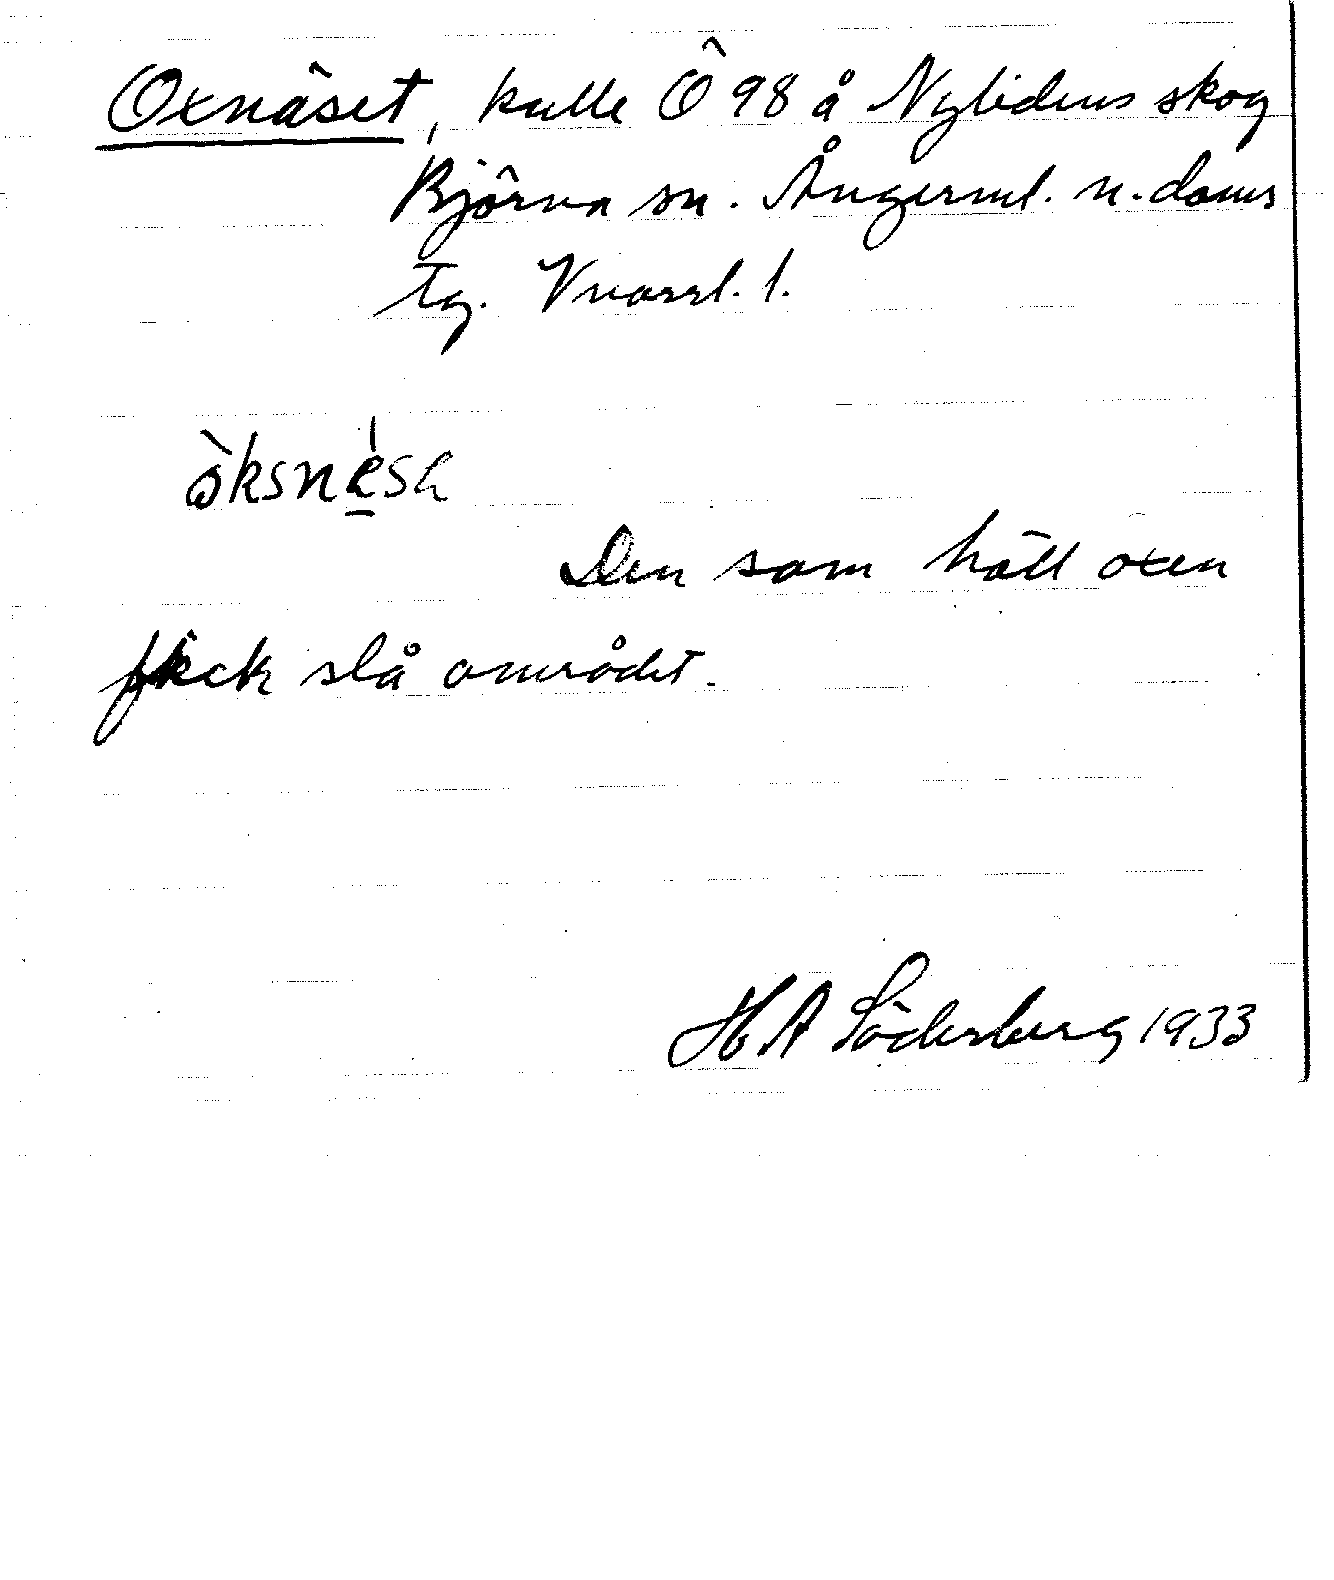 Oxnäset, kulle Ö 98 å Nylidens skog
Björna sn. Ångerml. n. doms
tg. Vnorrl. l.
òksnésɐ
Den som höll oxen
fick slå området.
H A Söderberg 1933